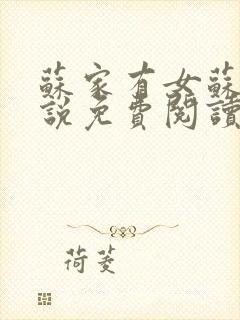 蘇家有女蘇
說免費閱讀
荷菱